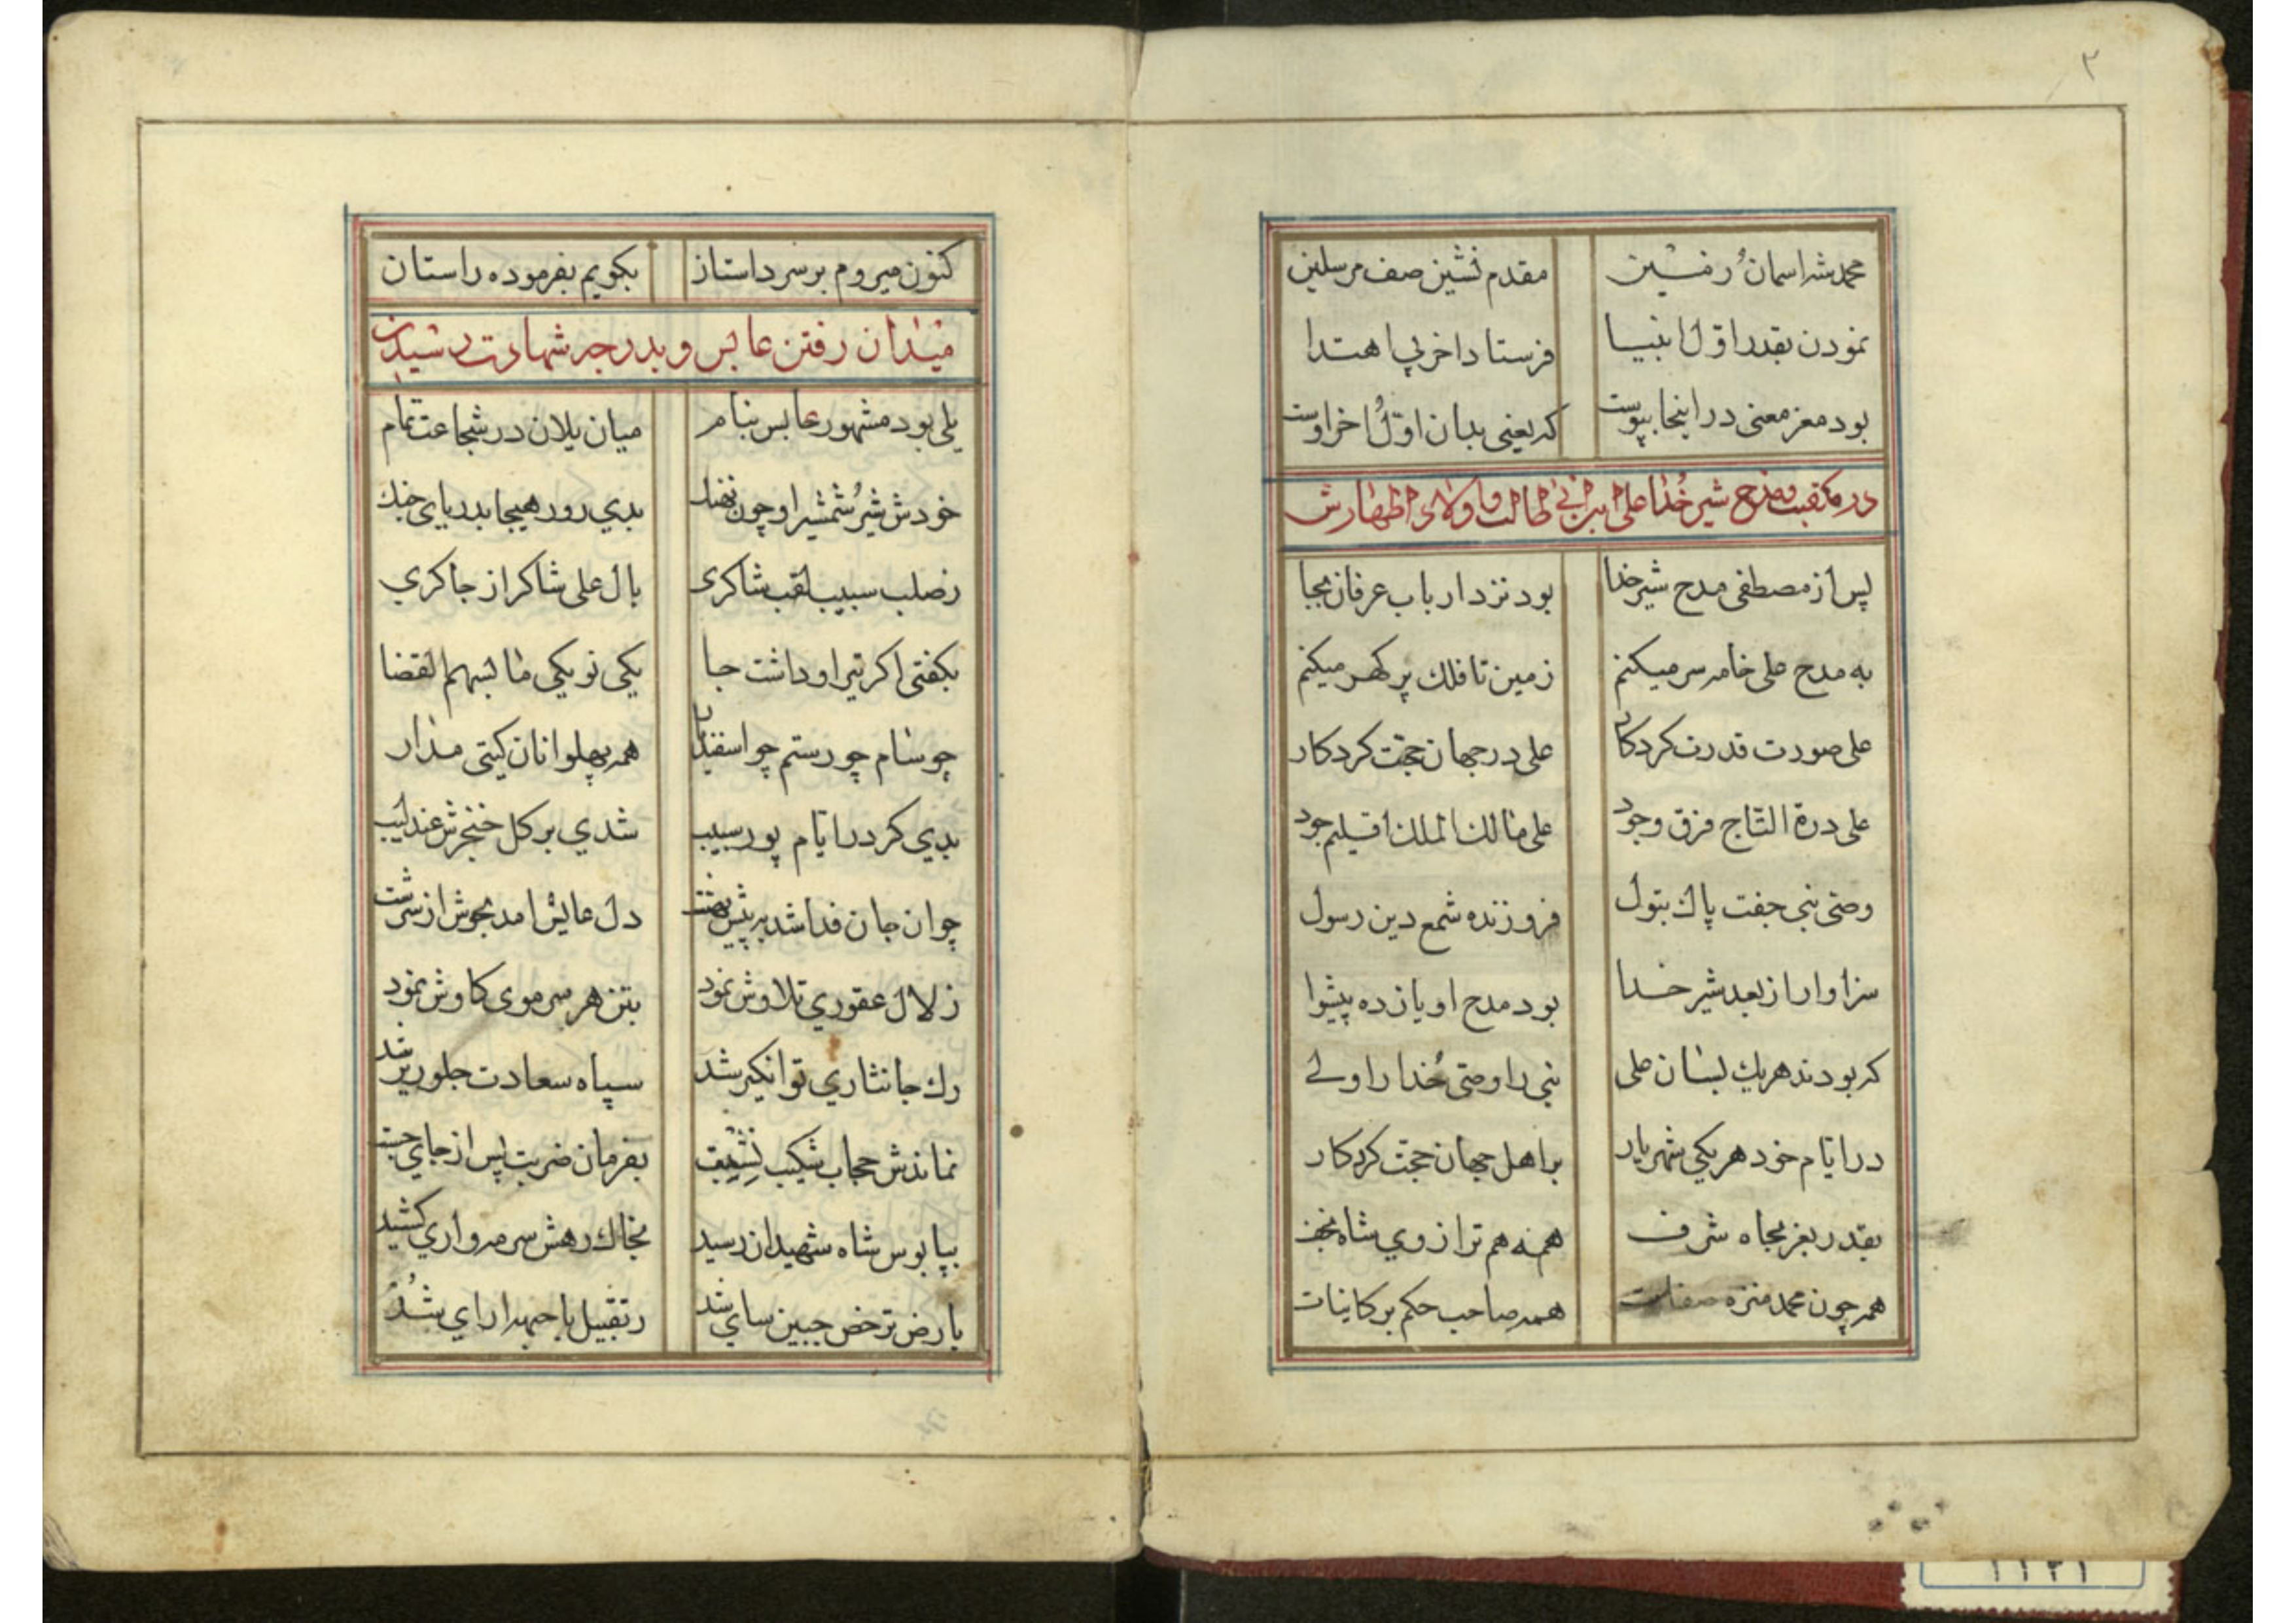 ۳
محمد شه اسمان و زمین مقدم نشین صف مرسلین
نمودن بقدر اوّل انبیا فرستاد اخر پی اهتدا
بود مغز معنی در اینجا بپوست که یعنی بدان اوّل اخر اوست
در منقبت و مدح شیر خدا علی ابن ابی طالب و اولاد اطهارش
پس از مصطفی مدح شیر خدا بود نزد ارباب عرفان بجا
به مدح علی خامه سر میکنم زمین تا فلك پر کهر میکنم
علی صورت قدرت کردکار علی در جهان حجّت کردکار
علی درة التّاج فرق وجود علی مالك الملك اقلیم جود
وصّی نبی جفت پاك بتول فروزنده شمع دین رسول
سزاوار از بعد شیر خدا بود مدح او یازده پیشوا
که بودند هریك بسان علی نبی را وصّی خدا را ولے
در ایّام خود هر یکی شهریار بر اهل جهان حجّت کردکار
بقدر بغز بجاه شرف همه هم تراز وی شاه نجف
همه چون محمد منزه صفات همه صاحب حکم بر کاینات
کنون میروم بر سر داستان بکویم بفرموده راستان
میدان رفتن عابس و بدرجه شهادت رسیدن
یلی بود مشهور عابس بنام میان یلان در شجاعت تمام
خودش شیر شمشیر او چون نهنك بدی روز هیجا بدریای جنك
ز صلب سبیب لقب شاکری بال علی شاکر از چاکری
بکفتی اکر تیر او داشت جا یکی نو یکی ما لسهم القضا
چو سام چو رستم چو اسفندیار همه پهلوانان کیتی مدار
بدی کر در ایّام پور سبیب شدی بر کل خنجرش عندلیب
چو ان جان فدا شد به پیش دل عابس امد بجوش از سرشت
ز لال عقوری تلاوش نمود بتن هر سر موی کاوش نمود
رك جانثاری توانکیر شد سپاه سعادت جلوریز شد
نماندش حجاب شکیب نشیب بفرمان ضربت پس از جای جست
بپابوس شاه شهیدان رسید بخاك رهش سرمه واری کشید
بارض ترخص جبین سای شد ز تقبیل با جبهه ارای شد